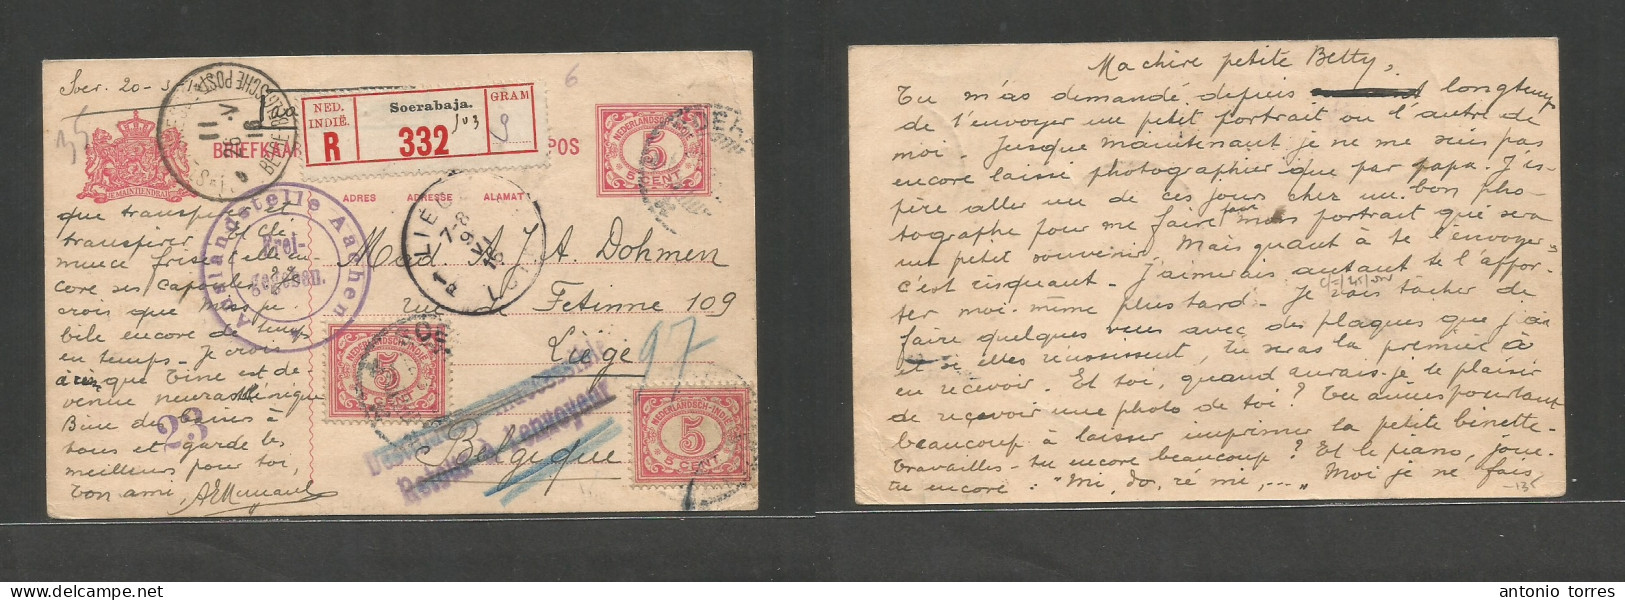 Soer. 20-3-1
35
6
NED. INDIË.
Soerabaja.
GRAM
R
332
9
BRIEFKAART
POS
NEDERLANDSCH-INDIË
5
5 CENT
JE MAINTIENDRAI
ADRES ADRESSE ALAMAT
LIEGE
7-8
9 VI
Auslandstelle Aachen
Frei-
gegeben.
que transpirer et
transpirer.
bile encore de temps
en temps. Je crois
que Tine est de
venue neurasthénique
tous et garde les
meilleurs pour toi,
Ton ami,
23
Mad A. J. A. Dohmen
rue Fétinne 109
Liége
Belgique
97
Retour à l'envoyeur
NEDERLANDSCH-INDIË
5
5 CENT
NEDERLANDSCH-INDIË
5
5 CENT
Ma chère petite Betty,
Tu m'as demandé depuis longtemps
de t'envoyer un petit portrait ou l'autre de
moi. Jusque maintenant je ne me suis pas
encore laissé photographier que par papa. J'es-
père aller un de ces jours chez un bon pho-
tographe pour me faire faire mon portrait qui sera
un petit souvenir. Mais quant à te l'envoyer
c'est risquant. J'aimerais autant te l'appor-
ter moi-même plus tard. Je vais tâcher de
faire quelques vues avec des plaques que j'ai
et si elles réussissent, tu seras la première à
en recevoir. Et toi, quand aurais-je le plaisir
de recevoir une photo de toi? Tu aimes pourtant
beaucoup à laisser imprimer ta petite binette.
Travailles-tu encore beaucoup? Et le piano, joue-
tu encore: "Mi, do, ré mi,...." Moi je ne fais
-135
antonio torres